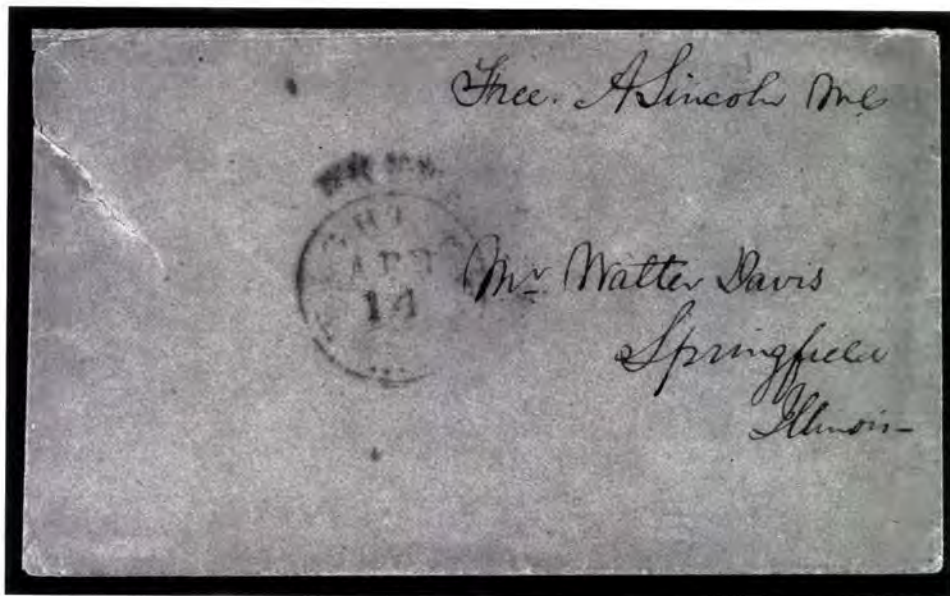 Free. A Lincoln MC
APR
14
Mr. Walter Davis
Springfield
Illinois